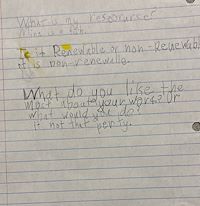 What is my resourse?
Mine is a
Is it Renewable or non-Renewabl
it is non-renewalle.
What do you like the
most about your work? Or
what would you do?
it not that perty.